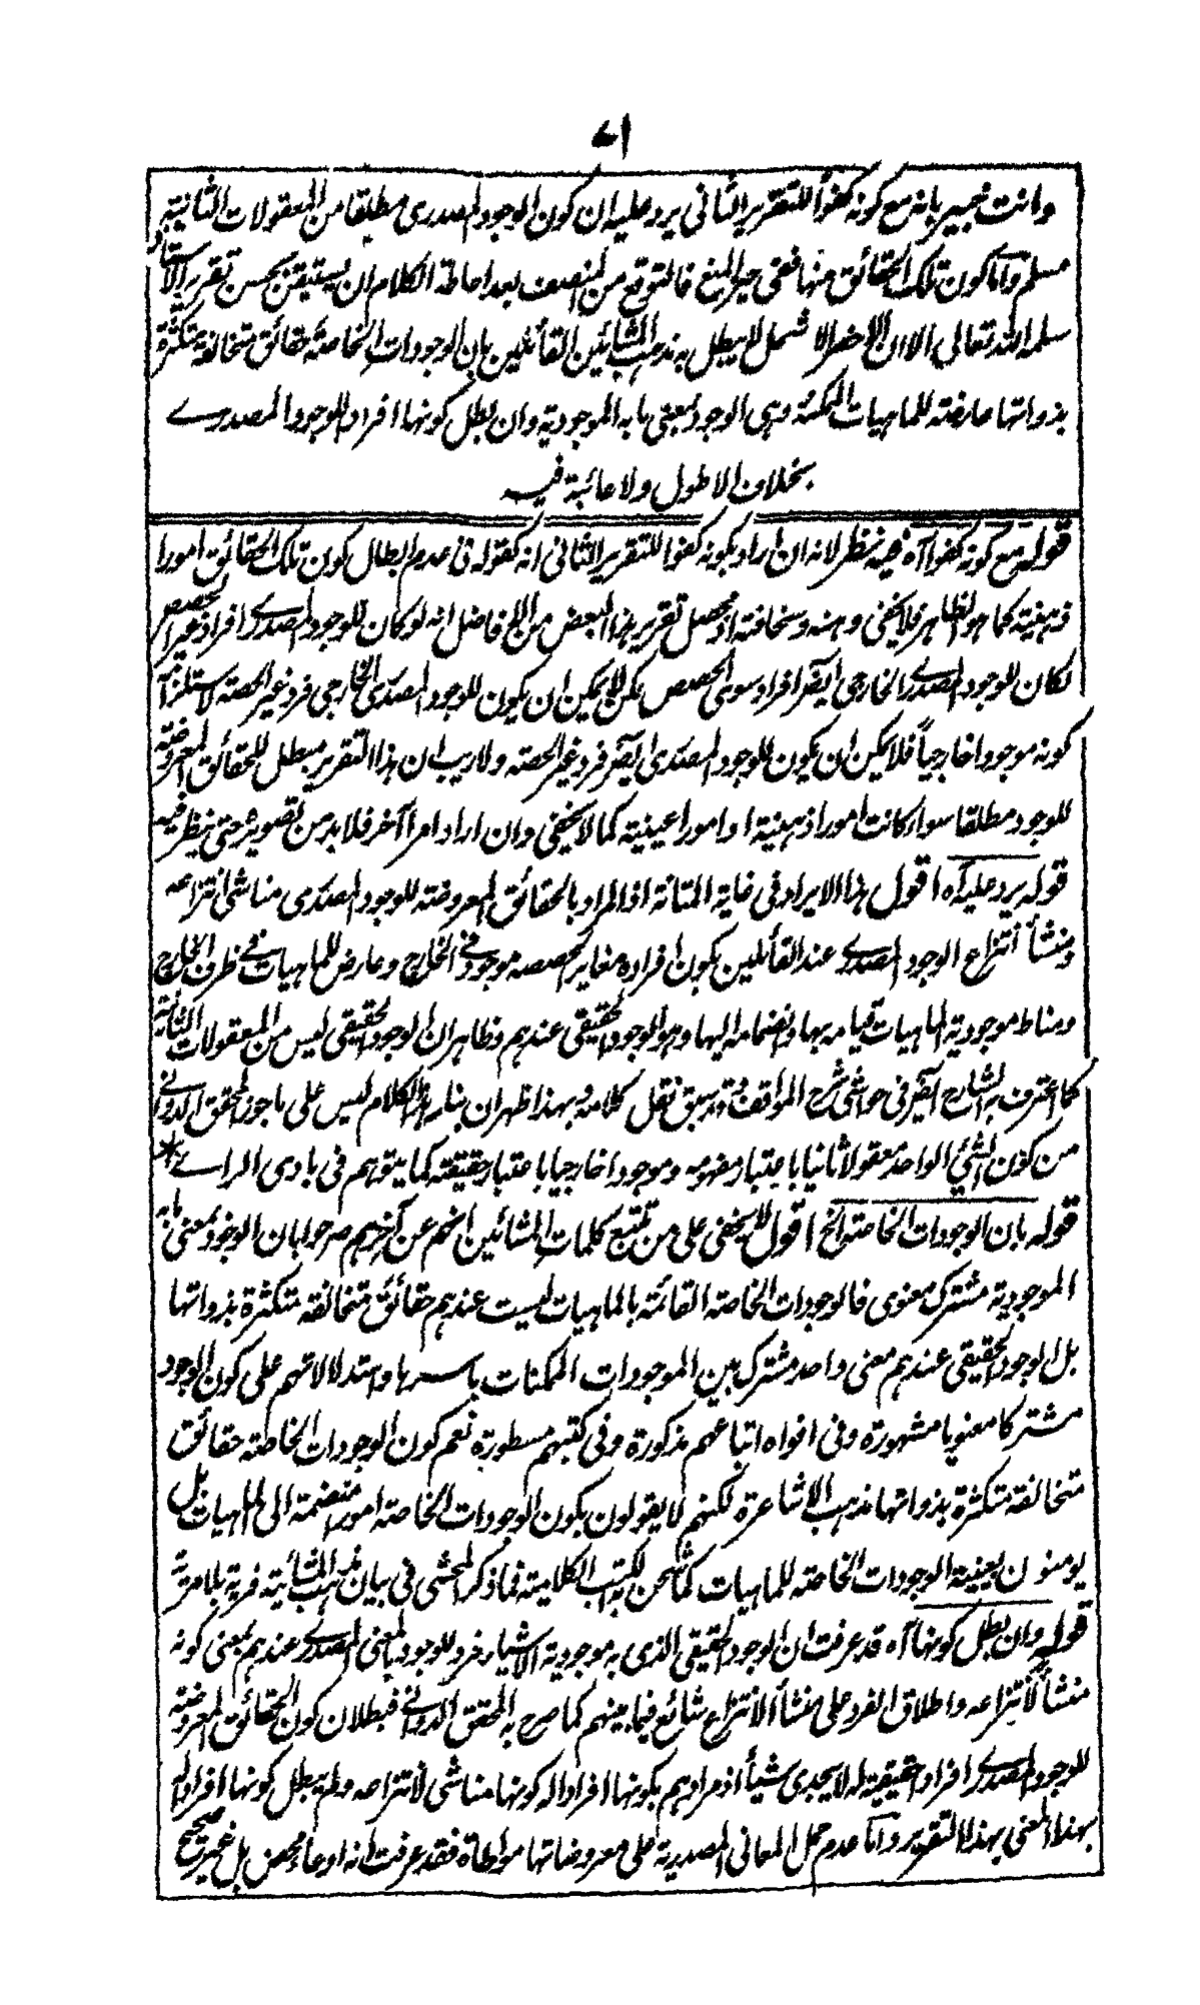 ٧١
وانت خبير بانه مع كونه كفوأ للتقرير الثانى يرد عليه ان كون الوجود المصدرى مطلقا من المعقولات الثانية
مسلم واما كون تلك الحقائق منها ففى حيز المنع فالمتوقع من المنصف بعد احاطة الكلام ان يستيقن بحسن تقرير الاستاد
سلمه الله تعالى الا ان الاخصر الاشمل لا يبطل به مذهب المشائين القائلين بان الوجودات الخاصة حقائق متخالفة متكثرة
بذواتها عارضة للماهيات الممكنة وهى الوجود بمعنى ما به الموجودية وان بطل كونها افراد للوجود المصدرے
بخلاف الاطول ولا عائبة فيه
قوله مع كونه كفوا آه فيه نظر لانه ان اراد بكونه كفوا للتقرير الثانى انه كفو له فى عدم ابطال كون تلك الحقائق امورا
ذهنية كما هو الظاهر فلا يخفى وهنه وسخافته اذ محصل تقرير هذا البعض من الافاضل انه لو كان للوجود المصدرے افراد غير الحصص
لكان للوجود المصدرے الخارجى ايضر افراد سوى الحصص لكن لا يمكن ان يكون للوجود المصدرى الخارجى فرد غير الحصة لاستلزامه
كونه موجودا خارجياً فلا يمكن ان يكون للوجود المصدرى ايضر فرد غير الحصة ولا ريب ان هذا التقرير مبطل للحقائق المعروضة
للوجود مطلقا سواء كانت امورا ذهنية او امورا عينية كما لا يخفى وان اراد امراً آخر فلا بد من تصويره حتى ينظر فيه
قوله يرد عليه آه اقول هذا الايراد فى غاية المتانة اذ المراد بالحقائق المعروضة للوجود المصدرى مناشى انتزاعه
ومنشأ انتزاع الوجود المصدرے عند القائلين بكون افراده مغايرا لحصصه موجود فى الخارج وعارض للماهيات فے ظرف الخارج
ومناط موجودية الماهيات قيامه بها وانضمامه اليها وهو الوجود الحقيقى عندهم وظاهر ان الوجود الحقيقى ليس من المعقولات الثانية
كما اعترف به الشارح ايضر فى حواشى شرح المواقف وقد سبق نقل كلامه وبهذا ظهر ان بناء هذا الكلام ليس على ما جوز المحقق الدوانے
من كون الشئ الواحد معقولا ثانيا باعتبار مفهومه وموجودا خارجيا باعتبار حقيقته كما يتوهم فى بادى الراے *
قوله بان الوجودات الخاصة الخ اقول لا يخفى على من تتبع كلمات المشائين انهم عن آخرهم صرحوا بان الوجود بمعنى ما به
الموجودية مشترك معنوى فالوجودات الخاصة القائمة بالماهيات ليست عندهم حقائق متخالفة متكثرة بذواتها
بل الوجود الحقيقى عندهم معنى واحد مشترك بين الموجودات الممكنات باسرها واستدلالاتهم على كون الوجود
مشتركا معنويا مشهورة وفى افواه اتباعهم مذكورة وفى كتبهم مسطورة نعم كون الوجودات الخاصة حقائق
متخالفة متكثرة بذواتها مذهب الاشاعرة لكنهم لا يقولون بكون الوجودات الخاصة امورا منضمة الى الماهيات بل
يومنون بعينية الوجودات الخاصة للماهيات كما شحن به الكتب الكلامية فما ذكر المحشى فى بيان مذهب المشائية فرية بلا مرية
قوله وان بطل كونها آه قد عرفت ان الوجود الحقيقى الذى به موجودية الاشياء فرد للوجود بالمعنى المصدرے عندهم بمعنى كونه
منشأ لانتزاعه واطلاق الفرد على منشأ الانتزاع شائع فيما بينهم كما صرح به المحقق الدوانے فبطلان كون الحقائق المعروضة
للوجود المصدرے افرادا حقيقية له لا يجدى شيأ اذ مرادهم بكونها افرادا له كونها مناشى لانتزاعه ولم يبطل كونها افرادا له
بهذا المعنى بهذا التقرير واما عدم حمل المعانى المصدرية على معروضاتها مواطاة فقد عرفت انه ادعاء محض بل غير صحيح